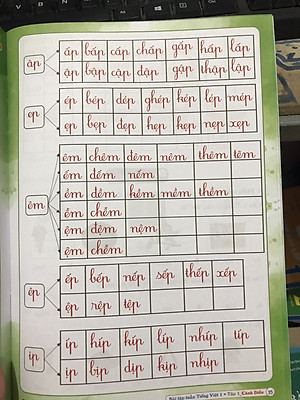 âp
ấp bấp cấp chấp gấp hấp lấp
ập bập cập dập gập thập lập
ep
ép bép dép ghép kép lép mép
ẹp bẹp đẹp hẹp kẹp nẹp xẹp
êm
êm chêm đêm nêm thêm têm
ếm đếm nếm
ềm đềm kềm mềm thềm
ễm chễm
ệm đệm nệm
ệm chệm
êp
ếp bếp nếp sếp thếp xếp
ệp rệp tệp
ip
íp híp kíp líp nhíp típ
ịp bịp dịp kịp nhịp
Bài tập tuần Tiếng Việt 1 • Tập 1_Cánh Diều